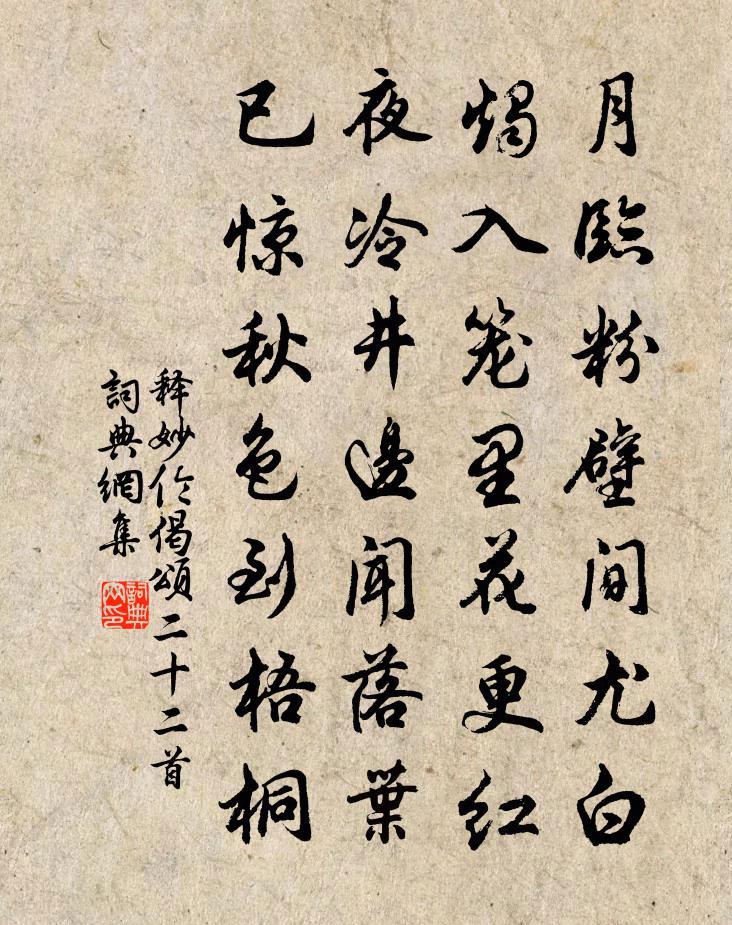 月臨粉壁间尤白
燭入笼里花更红
夜冷井邊闻落葉
已惊秋色到梧桐
释妙伦偈頌二十二首
詞典網集
詞典網印